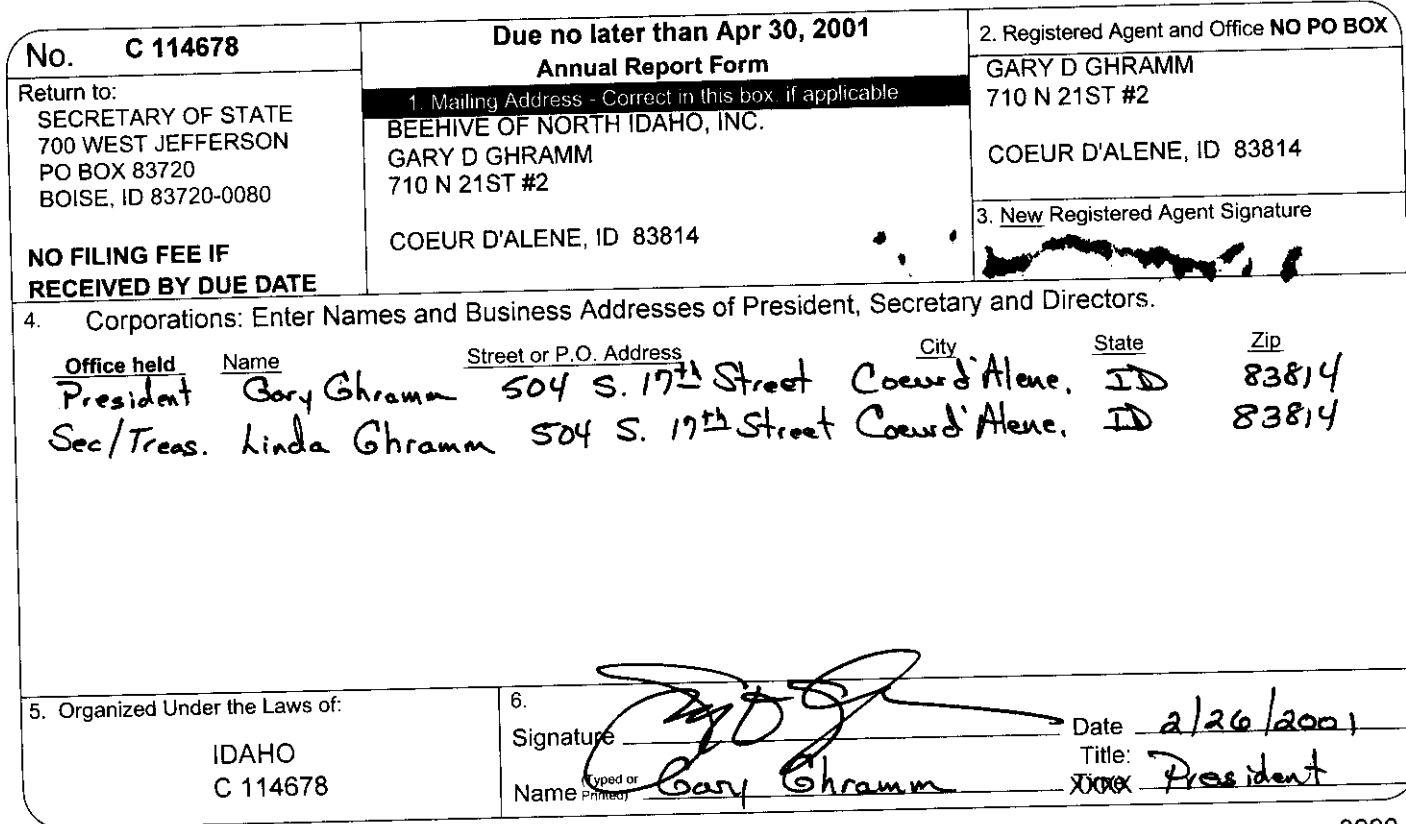 No. C 114678
Return to:
SECRETARY OF STATE
700 WEST JEFFERSON
PO BOX 83720
BOISE, ID 83720-0080
NO FILING FEE IF
RECEIVED BY DUE DATE
Due no later than Apr 30, 2001
Annual Report Form
1. Mailing Address - Correct in this box, if applicable
BEEHIVE OF NORTH IDAHO, INC.
GARY D GHRAMM
710 N 21ST #2
COEUR D'ALENE, ID 83814
2. Registered Agent and Office NO PO BOX
GARY D GHRAMM
710 N 21ST #2
COEUR D'ALENE, ID 83814
3. New Registered Agent Signature
4. Corporations: Enter Names and Business Addresses of President, Secretary and Directors.
Office held Name Street or P.O. Address City State Zip
President Gary Ghramm 504 S. 17th Street Coeur d'Alene, ID 83814
Sec/Treas. Linda Ghramm 504 S. 17th Street Coeur d'Alene, ID 83814
5. Organized Under the Laws of:
IDAHO
C 114678
6.
Signature Date 2/26/2001
Name (Typed or Printed) Gary Ghramm Title: President